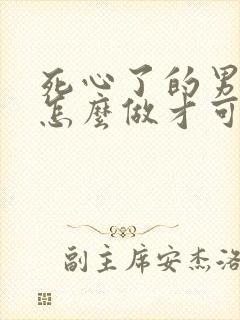 死心了的男
怎麼做才可
副主席安杰洛